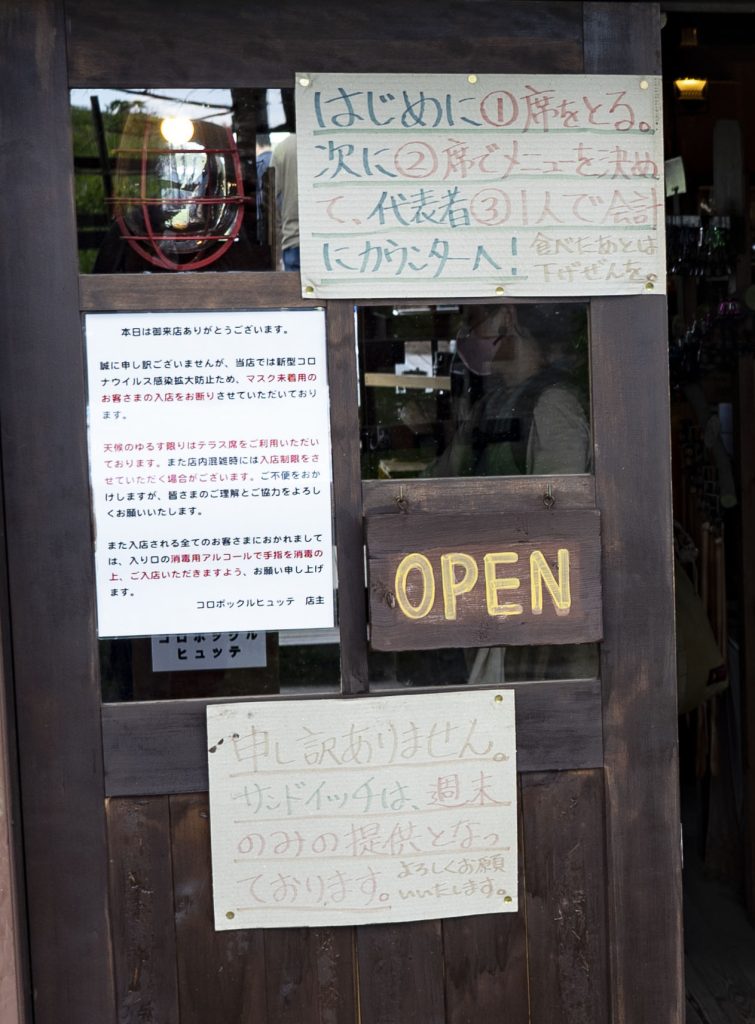 はじめに①席をとる。
次に②席でメニューを決め
て、代表者③1人で会計
にカウンターへ！
食べたあとは
下げぜんを。
本日は御来店ありがとうございます。
誠に申し訳ございませんが、当店では新型コロ
ナウイルス感染拡大防止ため、マスク未着用の
お客さまの入店をお断りさせていただいており
ます。
天候のゆるす限りはテラス席をご利用いただい
ております。また店内混雑時には入店制限をさ
せていただく場合がございます。ご不便をおか
けしますが、皆さまのご理解とご協力をよろし
くお願いいたします。
また入店される全てのお客さまにおかれまして
は、入り口の消毒用アルコールで手指を消毒の
上、ご入店いただきますよう、お願い申し上げ
ます。
コロボックルヒュッテ 店主
OPEN
コロボックル
ヒュッテ
申し訳ありません。
サンドイッチは、週末
のみの提供となっ
ております。
よろしくお願
いいたします。